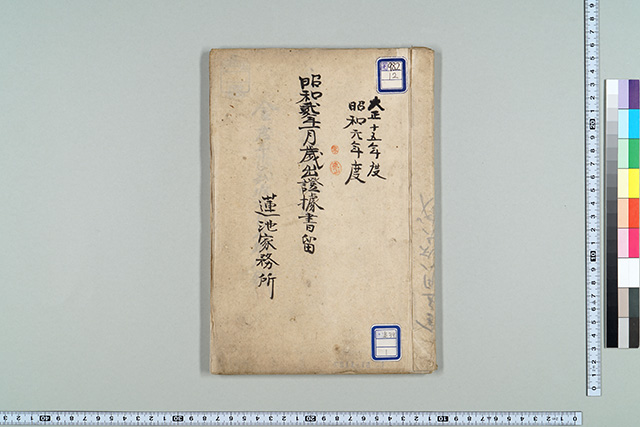 大正十五年度
昭和元年度
昭和貳年一月歳出證據書留
蓮池家務所
982
12
1